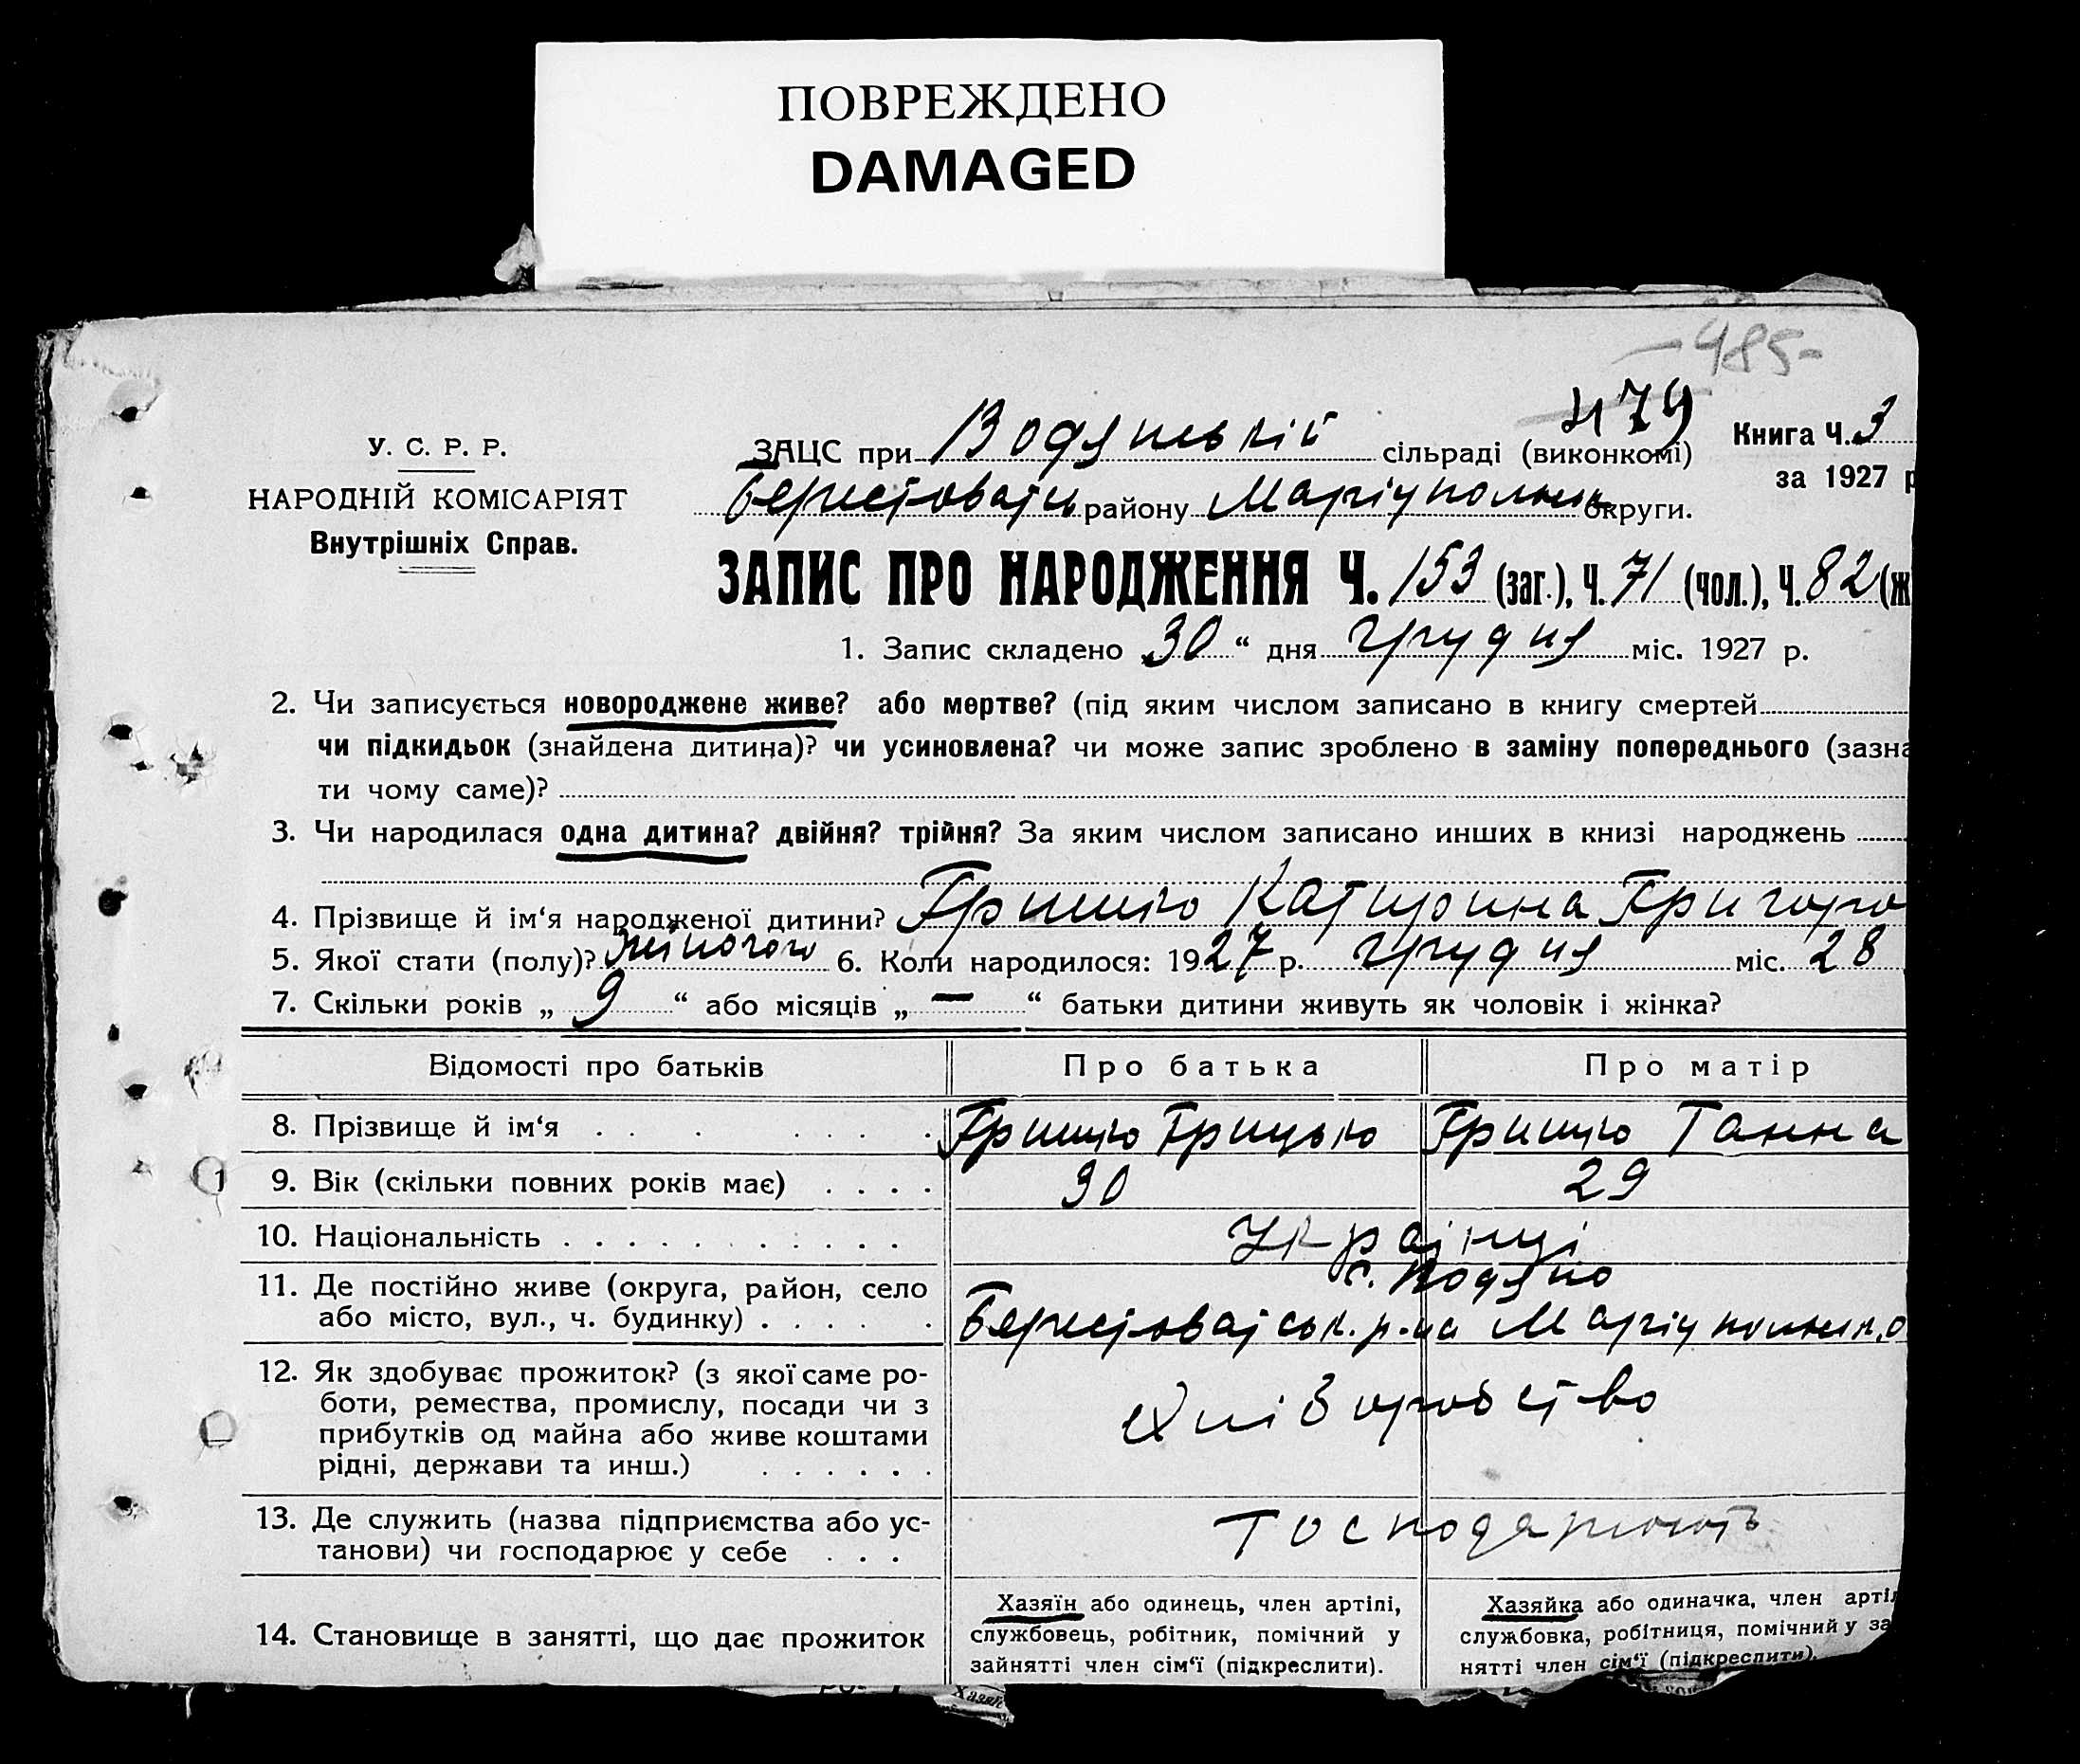 ПОВРЕЖДЕНО
DAMAGED
-485-
479
У. С. Р. Р.
НАРОДНІЙ КОМІСАРІЯТ
Внутрішніх Справ.
ЗАЦС при Водянській сільраді (виконкомі)
Книга Ч. 3
за 1927 р
району Маріупольськ округи.
ЗАПИС ПРО НАРОДЖЕННЯ Ч. 153 (заг.), Ч. 71 (чол.), Ч. 82 (ж
1. Запис складено 30 “ дня грудня міс. 1927 р.
2. Чи записується новороджене живе? або мертве? (під яким числом записано в книгу смертей
чи підкидьок (знайдена дитина)? чи усиновлена? чи може запис зроблено в заміну попереднього (зазна
ти чому саме)?
3. Чи народилася одна дитина? двійня? трійня? За яким числом записано инших в книзі народжень
4. Прізвище й ім‘я народженої дитини? Гришко Катирина Григоро
5. Якої стати (полу)? жіночого 6. Коли народилося: 1927 р. грудня міс. 28
7. Скільки років „ 9 “ або місяців „ — “ батьки дитини живуть як чоловік і жінка?
Відомості про батьків Про батька Про матір
8. Прізвище й ім‘я . . . . . . . Гришко Грицько Гришко Ганна
9. Вік (скільки повних років має) . . . . 30 29
10. Національність . . . . . . . . . . . Українці
11. Де постійно живе (округа, район, село с. Водяно
або місто, вул., ч. будинку) . . . . . Берестоватськ. р-на Маріупольськ. о
12. Як здобуває прожиток? (з якої саме ро-
боти, ремества, промислу, посади чи з
прибутків од майна або живе коштами
рідні, держави та инш.) . . . . . .
Хліборобство
13. Де служить (назва підприємства або ус-
танови) чи господарює у себе . . .
Господарюють
14. Становище в занятті, що дає прожиток
Хазяїн або одинець, член артілі,
службовець, робітник, помічний у
зайнятті член сім‘ї (підкреслити).
Хазяйка або одиначка, член артіл
службовка, робітниця, помічний у за
нятті член сім‘ї (підкреслити).